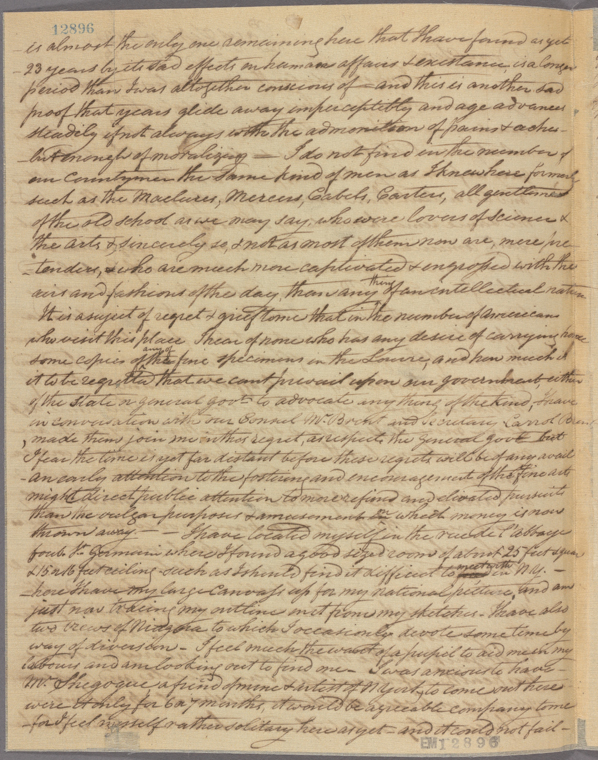 12896
is almost the only one remaining here that I have found as yet
23 years by its sad effects on human affairs & existence is a longer
period than I was altogether conscious of – and this is another sad
proof that years glide away imperceptibly and age advances
steadily if not always with the admonition of pains & aches –
but enough of moralizing — I do not find in the number of
our Countrymen the same kind of men as I knew here formerly
such as the Maclures, Mercers, Cabels, Carters, all gentlemen
of the old school as we may say, who were lovers of science &
the arts & sincerely so, & not as most of them now are, mere pre
-tenders, & who are much more captivated & engrossed with the
airs and fashions of the day, than any thing of an intellectual nature
It is a subject of regret & grief to me that in the number of americans
who visit this place I hear of none who has any desire of carrying home
some copies of the fine specimens in the Louvre, and how much is
it to be regretted that we cant prevail upon our government either
of the State or general govt. to advocate any thing of the kind, I have
in conversation with our Consul Mr. Brent and Secretary
, made them join me in this regret, as respects the general govt. but
I fear the time is yet far distant before these regrets will be of any avail
– an early attention to the fostering and encouragement of the fine arts
might direct public attention to more refined and elevated pursuits
than the vulgar purposes & amusement on which money is now
thrown away. — I have located myself in the rue de l'abbaye
foub St. Germain where I found a good sized room of about 25 feet square
& 15 or 16 feet ceiling – such as I should find it difficult to meet with in N.Y. –
here I have my large Canvass up for my national picture, and am
just now tracing my outline on it from my sketches – I have also
two views of Niagara to which I occasionly devote some time by
way of diversion – I feel much the want of a pupil to aid me in my
labours and am looking out to find one – I was anxious to have
Mr. Shegogue a friend of mine & artist of N York, to come out here
were it only for 6 or 7 months, it would be agreeable company to me
– for I feel myself rather solitary here as yet – and it could not fail –
EM12896